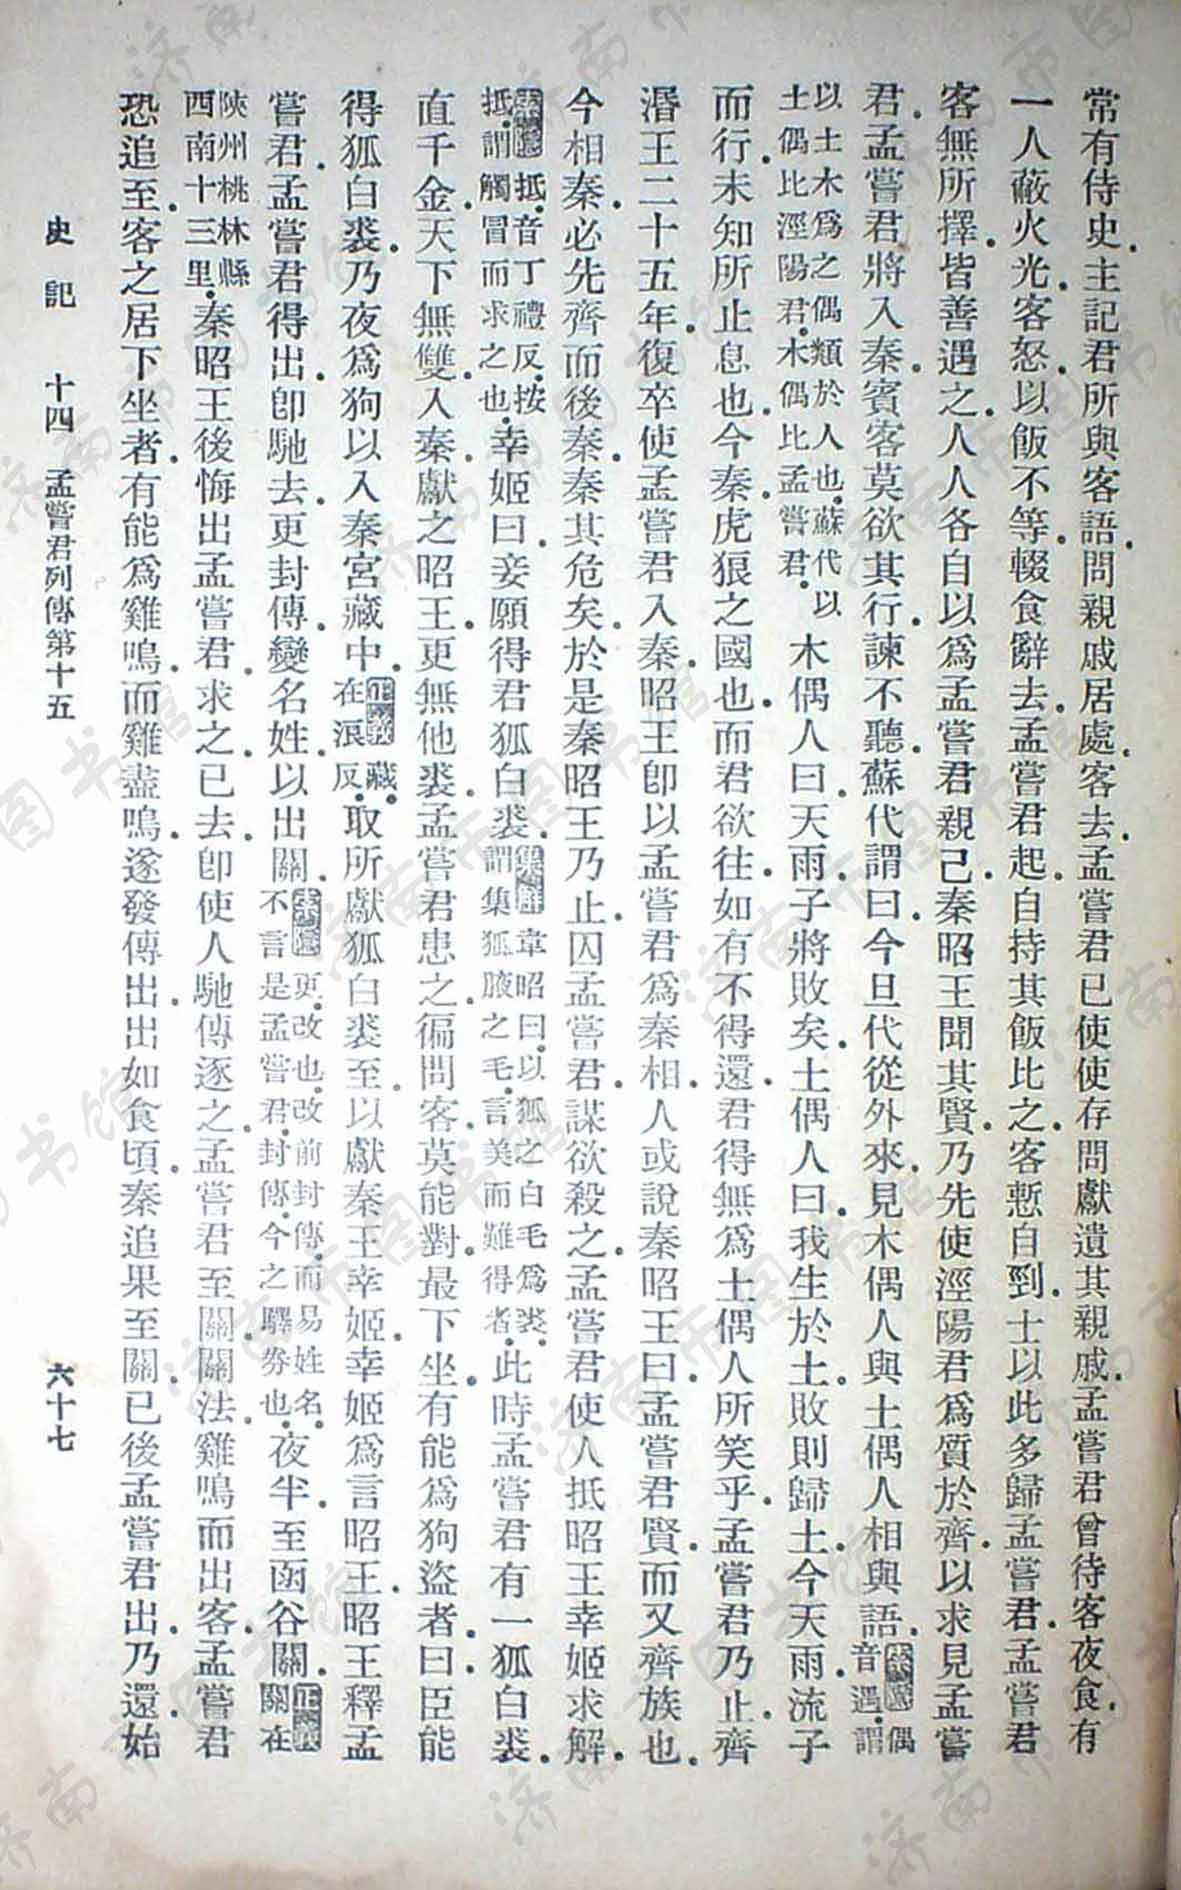 常有侍史.主記君所與客語.問親戚居處.客去.孟嘗君已使使存問獻遺其親戚.孟嘗君曾待客夜食.有
一人蔽火光.客怒.以飯不等.輟食辭去.孟嘗君起.自持其飯比之.客慙自剄.士以此多歸孟嘗君.孟嘗君
客無所擇.皆善遇之.人人各自以爲孟嘗君親己.秦昭王聞其賢.乃先使涇陽君爲質於齊.以求見孟嘗
君.孟嘗君將入秦.賓客莫欲其行.諫不聽.蘇代謂曰.今旦代從外來.見木偶人與土偶人相與語.索隱偶音遇.謂
以土木爲之偶.類於人也.蘇代以土偶比涇陽君.木偶比孟嘗君.木偶人曰.天雨.子將敗矣.土偶人曰.我生於土.敗則歸土.今天雨.流子
而行.未知所止息也.今秦.虎狼之國也.而君欲往.如有不得還.君得無爲土偶人所笑乎.孟嘗君乃止.齊
湣王二十五年.復卒使孟嘗君入秦.昭王卽以孟嘗君爲秦相.人或說秦昭王曰.孟嘗君賢.而又齊族也.
今相秦.必先齊而後秦.秦其危矣.於是秦昭王乃止.囚孟嘗君.謀欲殺之.孟嘗君使人抵昭王幸姬求解.
索隱抵.音丁禮反.按抵.謂觸冒而求之也.幸姬曰.妾願得君狐白裘.集解韋昭曰.以狐之白毛爲裘.謂集狐腋之毛.言美而難得者.此時孟嘗君有一狐白裘.
直千金.天下無雙.入秦.獻之昭王.更無他裘.孟嘗君患之.徧問客.莫能對.最下坐.有能爲狗盜者.曰.臣能
得狐白裘.乃夜爲狗以入秦宮藏中.正義藏.在浪反.取所獻狐白裘至.以獻秦王幸姬.幸姬爲言昭王.昭王釋孟
嘗君.孟嘗君得出.卽馳去.更封傳.變名姓.以出關.索隱更.改也.改前封傳.而易姓名.不言是孟嘗君.封傳.今之驛券也.夜半.至函谷關.正義關在
陝州桃林縣西南十三里.秦昭王後悔出孟嘗君.求之.已去.卽使人馳傳逐之.孟嘗君至關.關法.雞鳴而出客.孟嘗君
恐追至.客之居下坐者.有能爲雞鳴.而雞盡鳴.遂發傳出.出如食頃.秦追果至關.已後孟嘗君出.乃還.始
史記 十四 孟嘗君列傳第十五 六十七